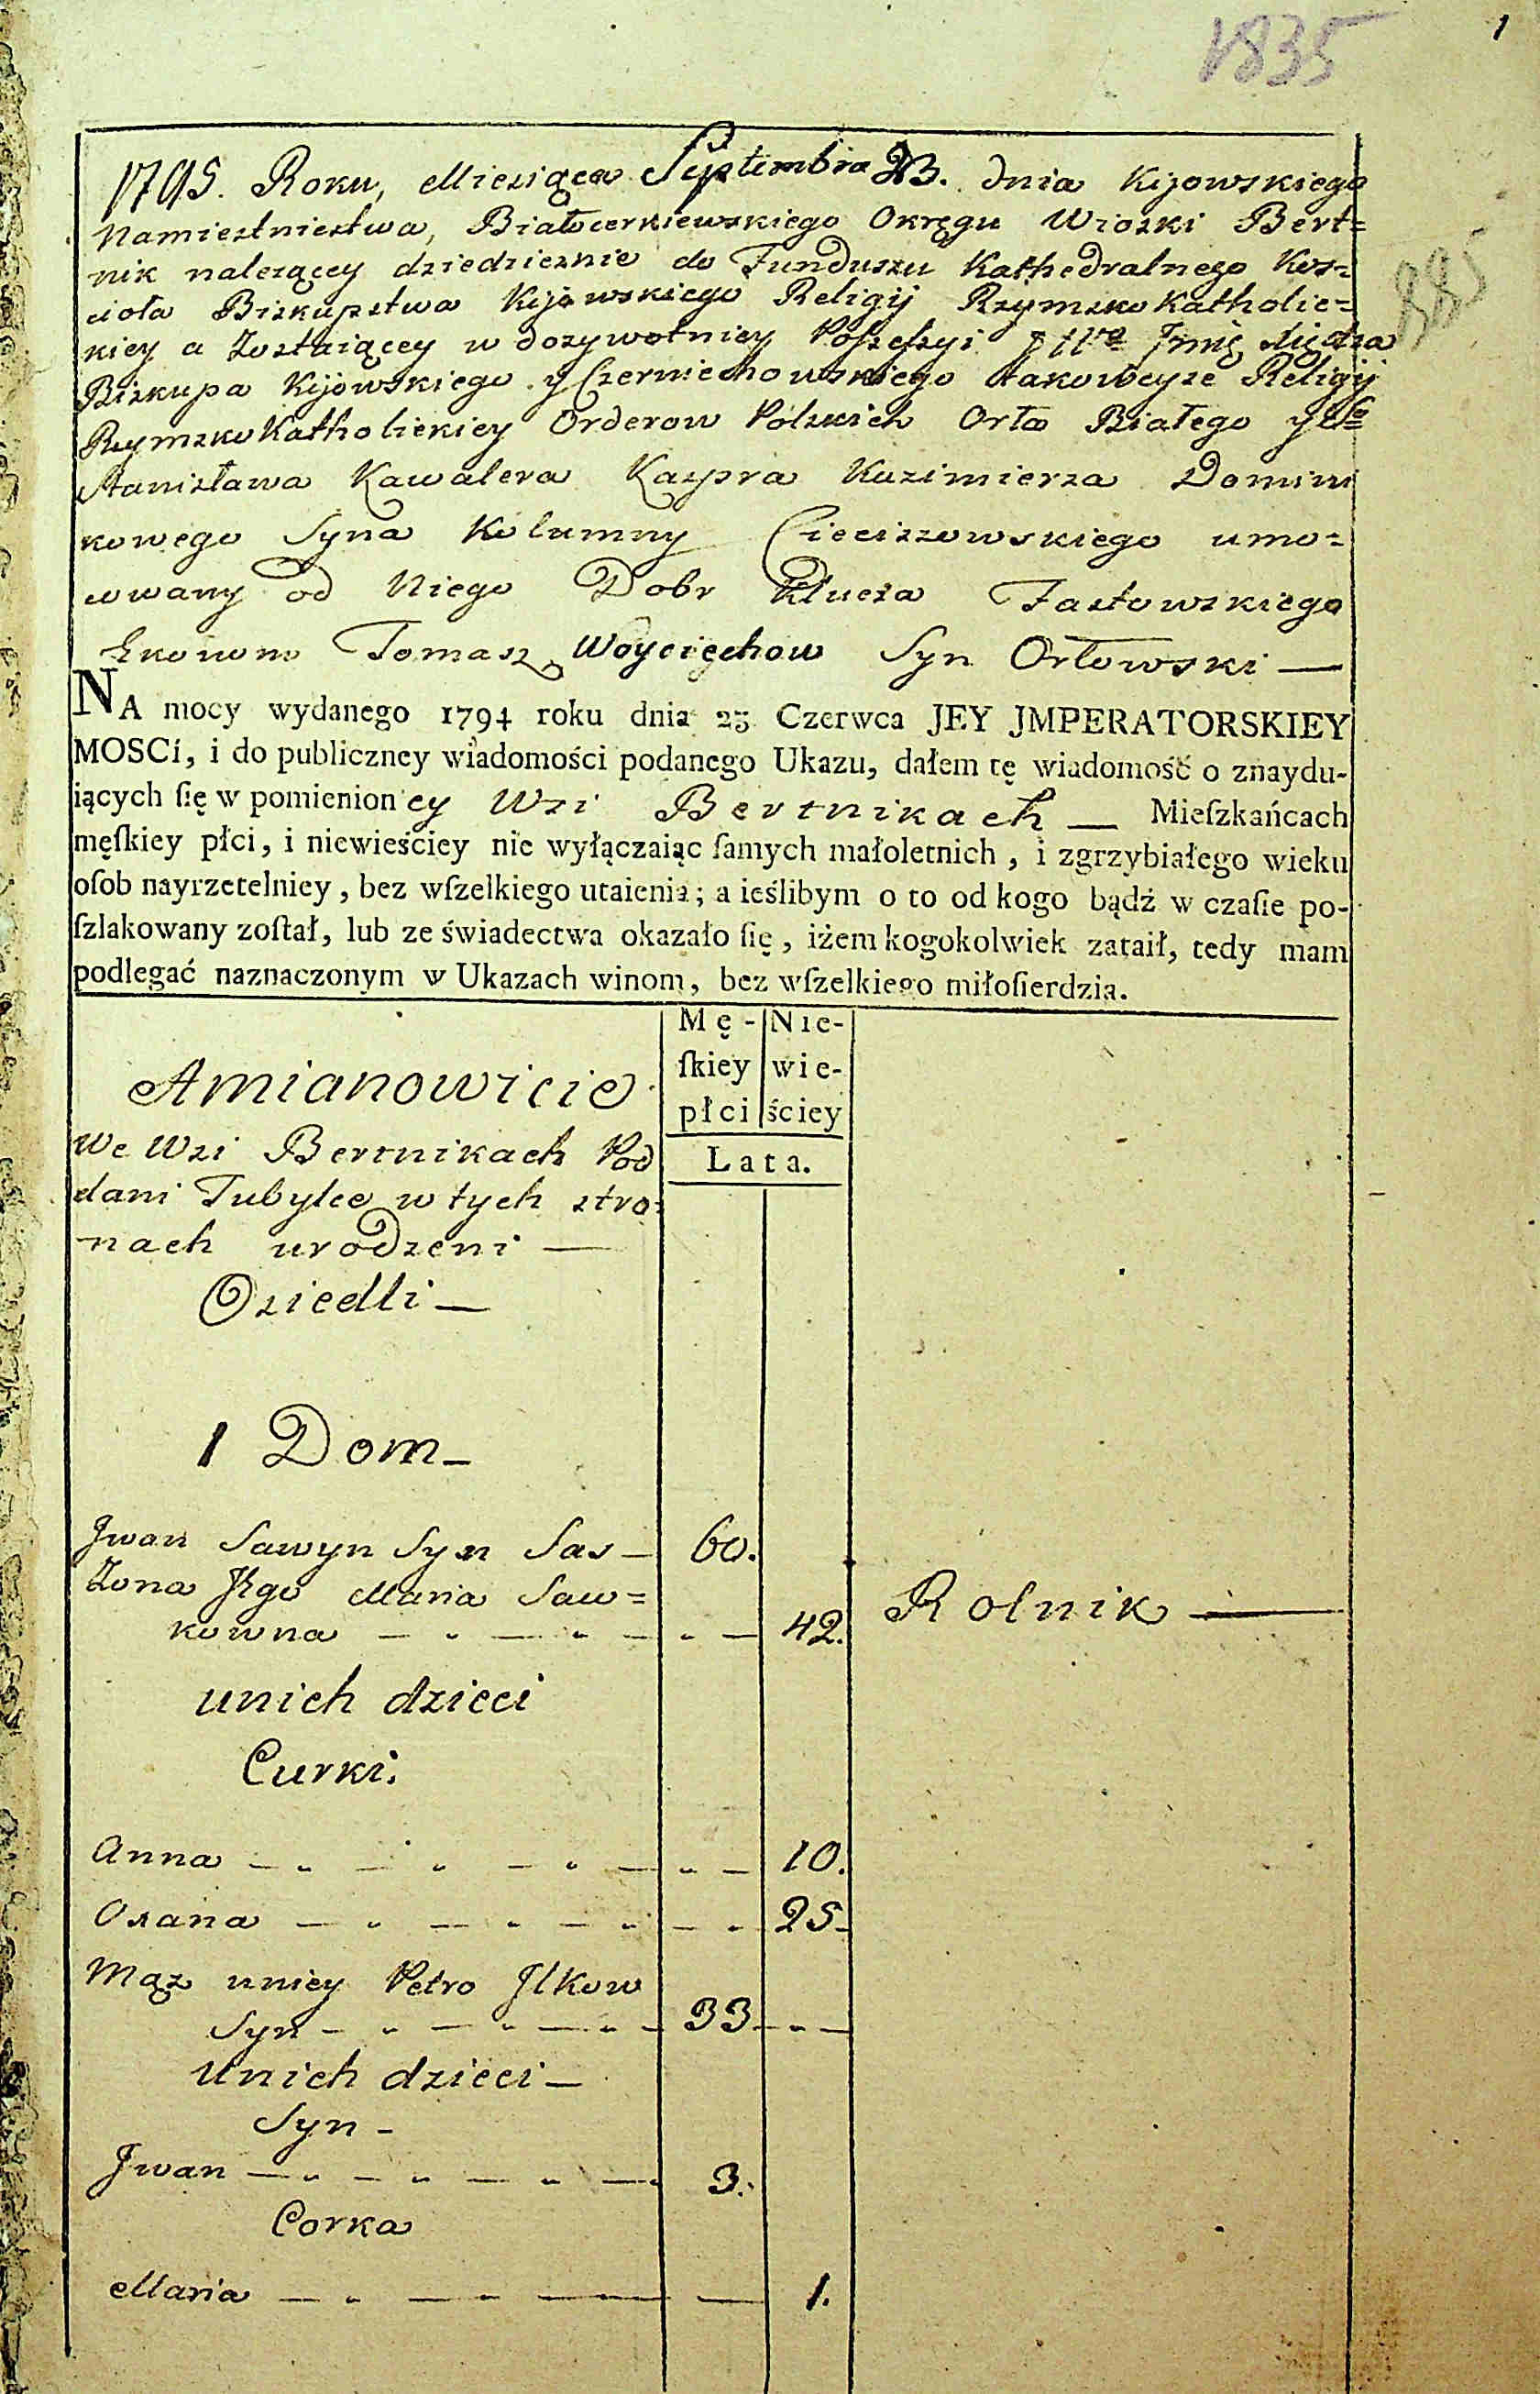 1
1835
885
1795. Roku, Miesiąca Septembra 23. dnia Kijowskiego
Namiestnictwa, Białocerkiewskiego Okręgu Wioski Bert=
nik nalezącey dziedzicznie do Funduszu Kathedralnego Kos=
cioła Biskupstwa Kijowskiego Religij Rzymsko Katholic=
kiey a Zostaiącey w dozywotniey Possessyi Xiędza
Biskupa Kijowskiego y Czerniechowskiego takoweyze Religij
Rzymsko Katholickiey Orderow Polskich Orła Białego y
Stanisława Kawalera Kaspra Kazimierza Domini
kowego Syna Kolumny Cieciszowskiego umo=
cowany od Niego Dobr Klucza Fastowskiego
Ekonom Tomasz Woyciechow Syn Orłowski —
NA mocy wydanego 1794 roku dnia 23 Czerwca JEY JMPERATORSKIEY
MOSCi, i do publiczney wiadomości podanego Ukazu, dałem tę wiadomość o znaydu-
iących ſię w pomienioney Wsi Bertnikach — Mieſzkańcach
męſkiey płci, i niewieściey nie wyłączaiąc ſamych małoletnich, i zgrzybiałego wieku
oſob nayrzetelniey, bez wſzelkiego utaienia; a ieślibym o to od kogo bądź w czaſie po-
ſzlakowany zoſtał, lub ze świadectwa okazało ſię, iżem kogokolwiek zataił, tedy mam
podlegać naznaczonym w Ukazach winom, bez wſzelkiego miłoſierdzia.
Mę- Nie-
ſkiey wie-
płci ściey
Lata.
Amianowicie
We Wsi Bertnikach Pod
dani Tubylce w tych stro=
nach urodzeni —
Osiedli —
1 Dom —
Jwan Sawyn Syn Sas — 60.
Zona Jego Maria Saw=
kowna — " — " — " — 42. Rolnik —
unich dzieci
Curki.
Anna — " — " — " — " — 10.
Oxana — " — " — " — " 25 —
Mąz uniey Petro Jlkow
Syn — " — " — " — 33 — " —
Unich dzieci —
Syn —
Jwan — " — " — " — 3.
Corka
Maria — " — " — — 1.